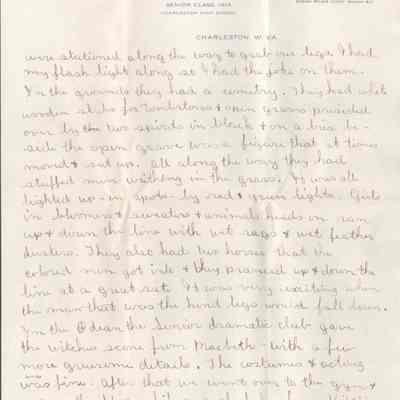 SENIOR CLASS, 1914
CHARLESTON HIGH SCHOOL
CHARLESTON, W. VA.
were stationed along the way to grab our legs. I had
my flash light along so I had the joke on them.
In the grounds they had a cemetry. They had white
wooden slabs for tombstones & open graves presided
over by the two spirits in black & on a bier be-
side the open grave was a figure that at times
moved & sat up. All along the way they had
stuffed men writhing in the grass. It was all
lighted up in spots by red & green lights. Girls
in bloomers & sweaters & animals heads on ran
up & down the line with wet rags & wet feather
dusters. They also had two horses that the
colored men got into & they pranced up & down the
line at a great rate. It was very exciting when
the man that was the hind legs would fall down.
In the Odeon the Senior dramatic club gave
the witches scene from Macbeth - with a few
more gruesome details. The costumes & acting
was fine. After that we went over to the gym &